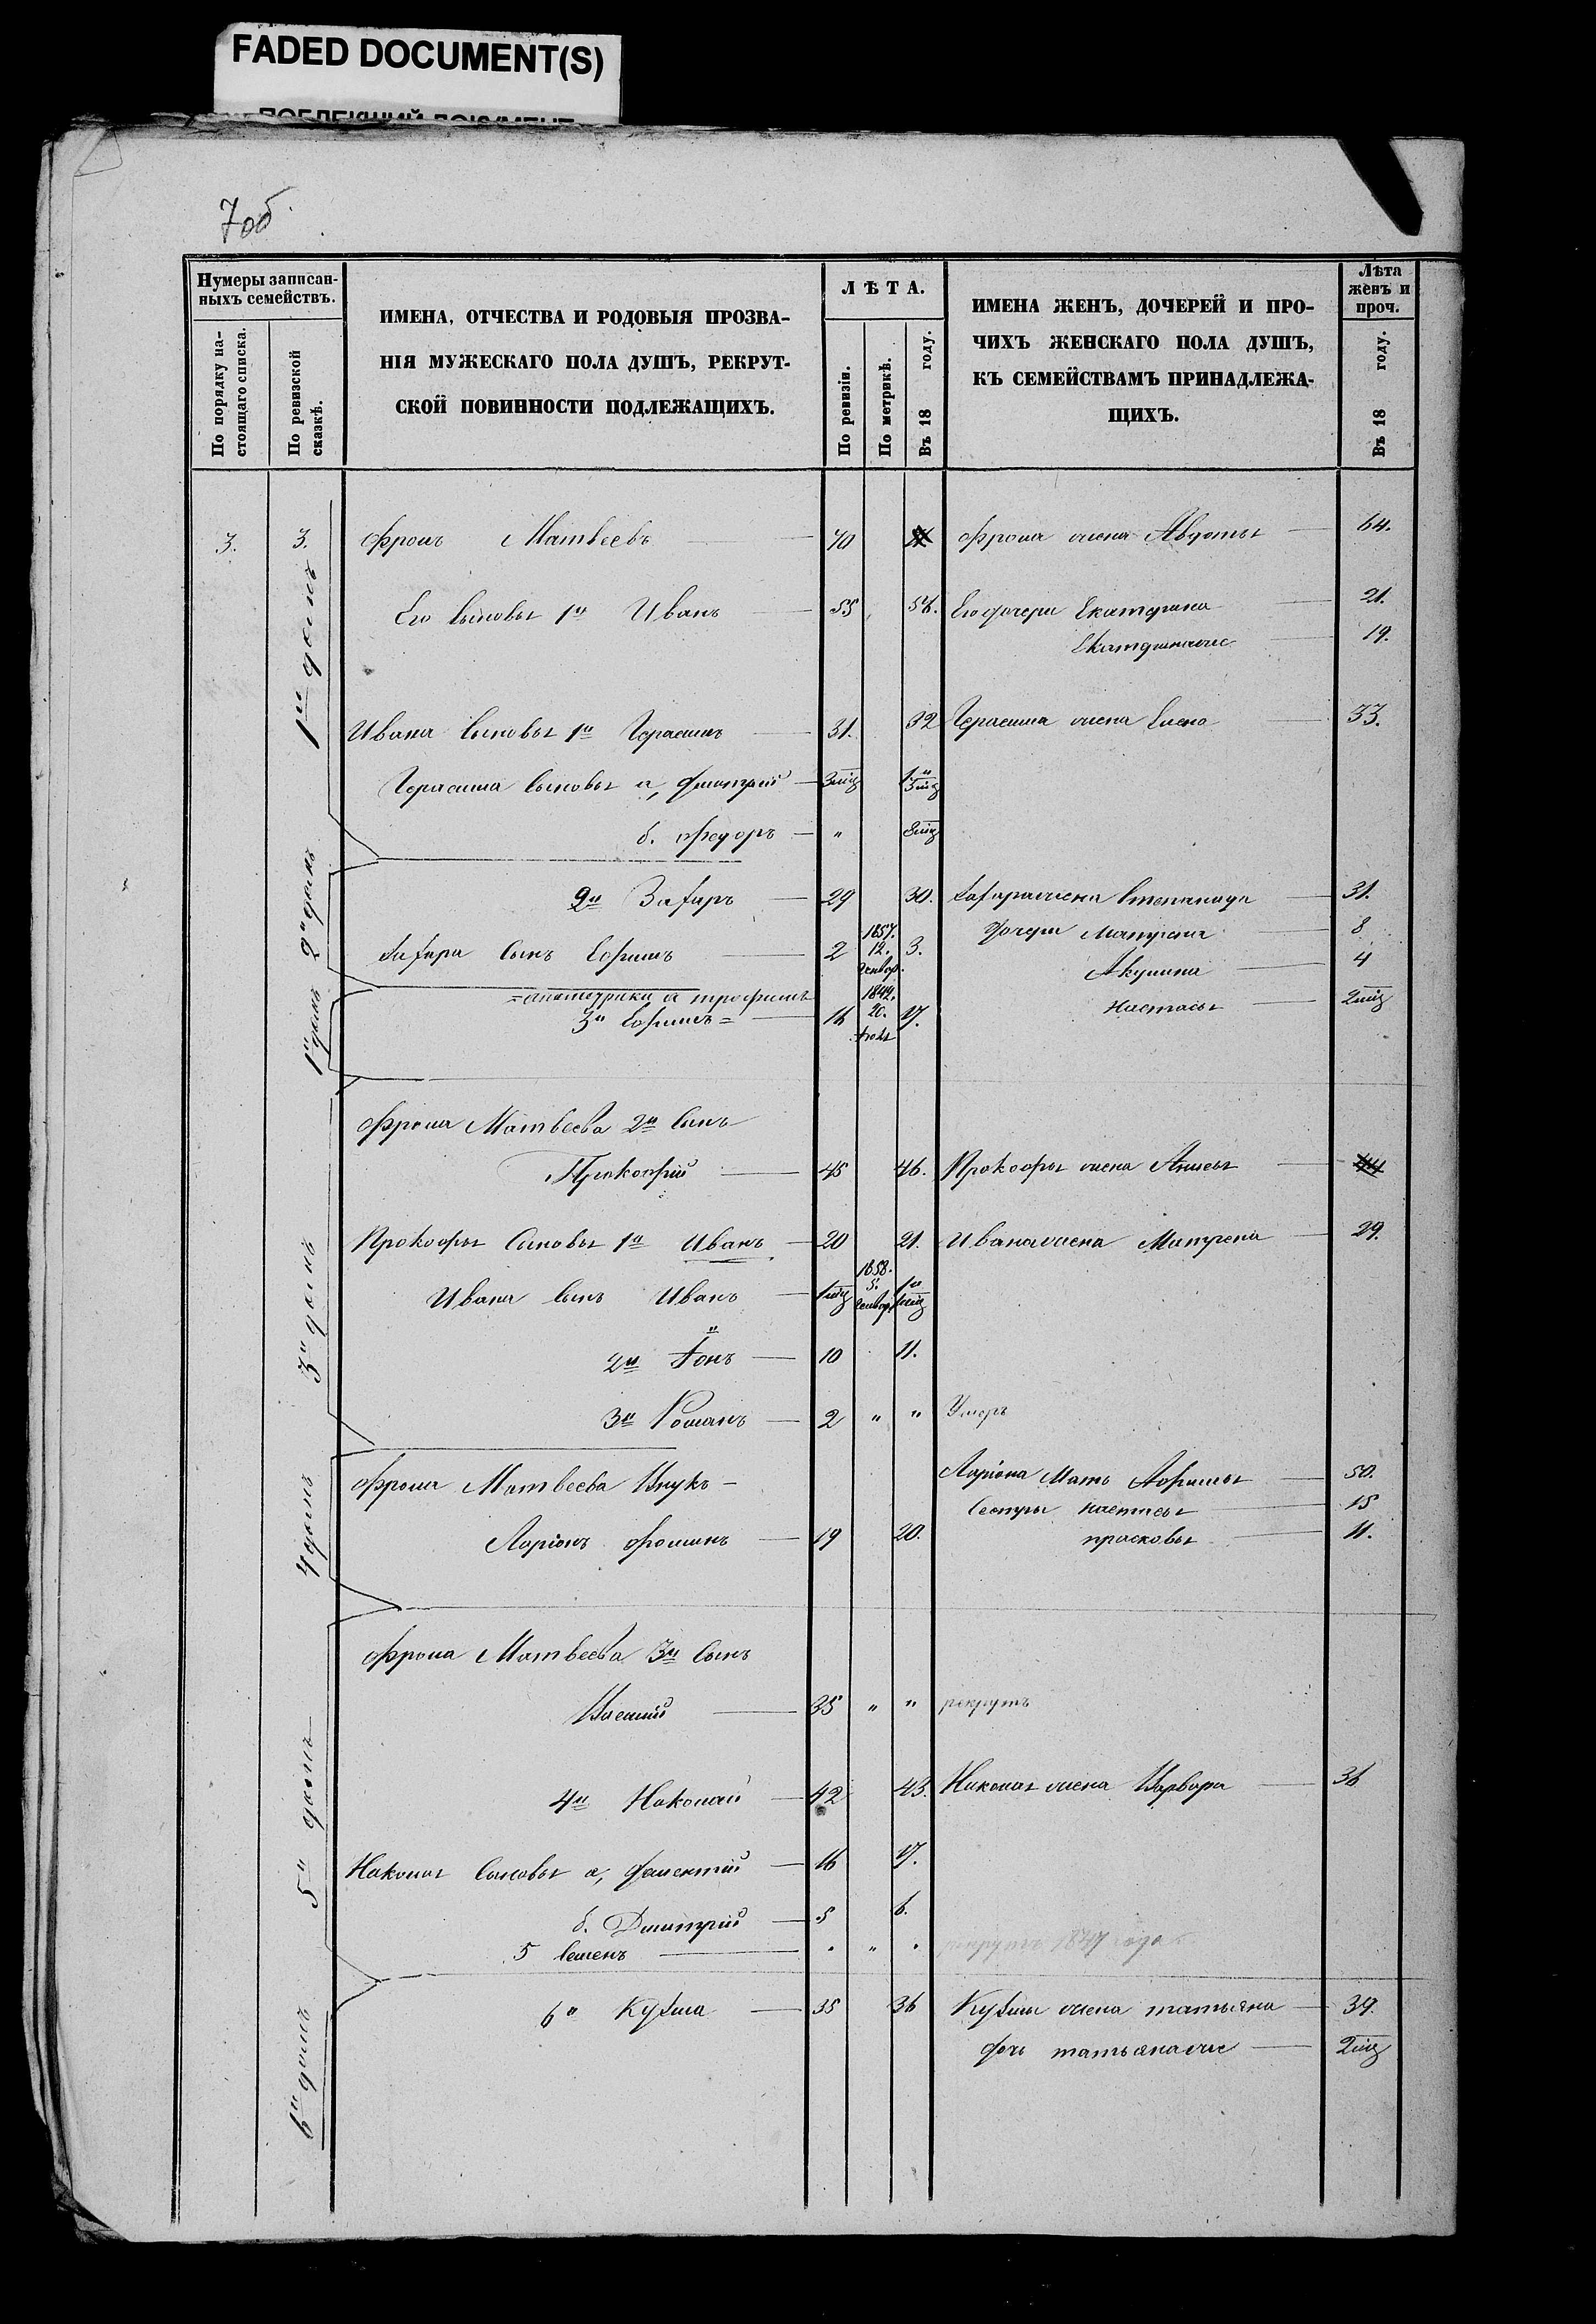 FADED DOCUMENT(S)
7об.
Нумеры записан-
ныхъ семействъ.
По порядку на-
стоящаго списка.
По ревизской
сказкѣ.
ИМЕНА, ОТЧЕСТВА И РОДОВЫЯ ПРОЗВА-
НІЯ МУЖЕСКАГО ПОЛА ДУШЪ, РЕКРУТ-
СКОЙ ПОВИННОСТИ ПОДЛЕЖАЩИХЪ.
ЛѢТА.
По ревизіи.
По метрикѣ.
Въ 18 году.
ИМЕНА ЖЕНЪ, ДОЧЕРЕЙ И ПРО-
ЧИХЪ ЖЕНСКАГО ПОЛА ДУШЪ,
КЪ СЕМЕЙСТВАМЪ ПРИНАДЛЕЖА-
ЩИХЪ.
Лѣта
женъ и
проч.
Въ 18 году.
3. 3. Фролъ Матвеевъ 70 Фрола жена Авдотья 64.
1й домъ
Его сыновья 1й Иванъ 55 56. Его дочери Екатерина 21.
Екатерина же 19.
Ивана сыновья 1й Герасимъ 31. 32 Герасима жена Елена 33.
Герасима сыновья а, Дмитрій 3мц 1й 3мц
б. Федоръ " 3мц
2й домъ
2й Захаръ 29 30. Захара жена Степанида 31.
Захара сынъ Ефимъ 2 1857. 12. Генвар. 3. Дочери Матрена 8
Акулина 4
1й домъ
=а по метрики а трофимъ 1844.
3й Ефимъ= 16 20. 17. Настасья 2мц
Фрола Матвеева 2й сынъ
Прокофій 45 46. Прокофья жена Анисья 44
3й домъ
Прокофья сыновья 1й Иванъ 20 21. Ивана жена Матрена 29.
Ивана сынъ Иванъ 1мц 1858. 5. Генвар. 1й 1мц
2й 10 11.
3й Романъ 2 " " Умеръ
4 домъ
Фрола Матвеева Внукъ Ларіона Мать Афимья 50.
Сестры настасья 15
Ларіонъ фроминъ 19 20. прасковья 11.
Фрола Матвеева 3й сынъ
Василій 35 " " рекрутъ
5й домъ
4й Николай 42 43. Николая жена Варвара 36
Николая сыновья а, 16 17.
б. Дмитрій 5 6.
5 Семенъ " " " рекрутъ 1847 года
6й домъ
6й Кузма 35 36 Кузмы жена татьяна 39.
дочь татьяна же 2мц